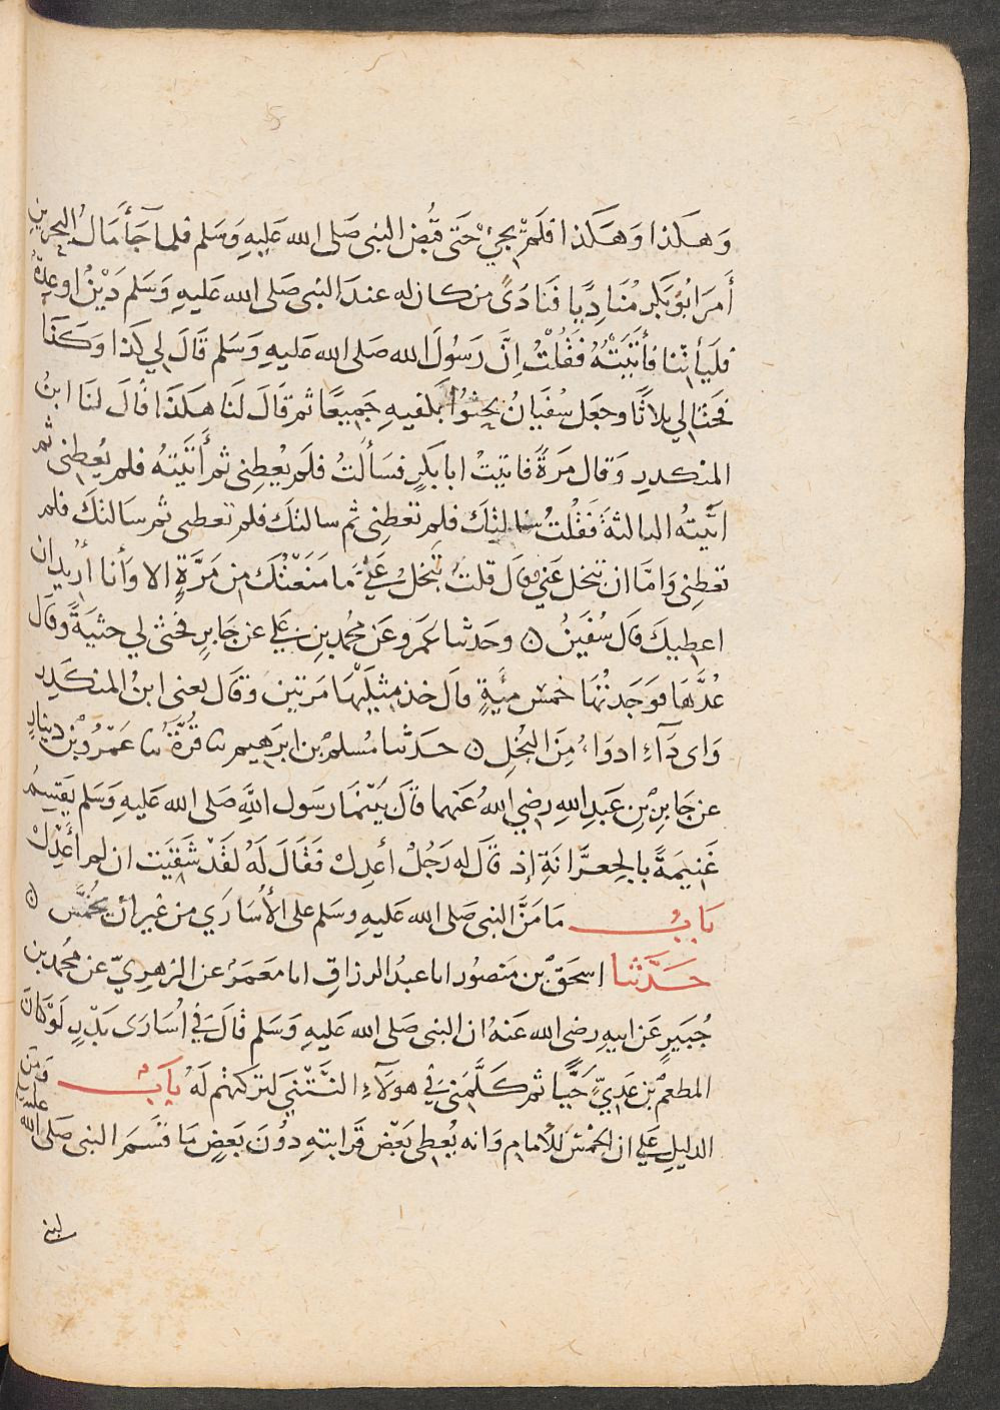 وَهَكذا وَهَكَذا فلَمْ يجئ حَتّى قُبِضَ النبى صَلى الله عَليهِ وَسَلم فلما جَأ مَالُ البحرينِ
أَمرَ ابُو بَكرٍ مُنَادِيًا فنَادَى من كان له عندَ النبى صَلى الله عَليهِ وَسَلم دَيْنٌ او عِدَةٌ
فليَأتِنا فأتَيْتُهُ فَقُلْتُ اِنَّ رَسُولَ الله صَلى الله عَليهِ وَسَلم قَالَ لي كَذا وَكَذَا
فحَثا لي ثلاثًا وجعَل سُفيَانُ يحثُوا بكفيهِ جَميعًا ثم قَالَ لَنا هكَذَا قَالَ لنَا ابنُ
المنكدرِ وَقال مَرَةً فاتيتُ ابا بكرٍ فسَألتُ فلَم يُعطِنى ثم أَتَيتهُ فلم يُعطِنى ثم
اتَيتهُ الثالثةَ فَقُلْتُ سَالتكَ فلم تعطِنى ثم سالتكَ فلم تعطنى ثم سَالتكَ فلم
تعطِنى وَامّا ان تبخل عَني قَال قلتُ تبَخلُ عَليَّ مَا مَنعْتُكَ مِن مَرَّةٍ الا وَأنا أُريدُ ان
اعطيكَ قَالَ سُفيَنُ ۞ وحَدثنا عَمرو عَن محُمدِ بنِ عَليٍ عن جَابرٍ فحثى لي حثيَةً وقَال
عُدَّهَا فوَجَدتُهَا خمسَ ميَةٍ قال خذ مِثليْهَا مَرتينِ وَقَال يعنى ابنُ المنكَدِرِ
وَاى دَآءٍ ادوَاءُ مِنَ البُخلِ ۞ حدَثنا مُسلمُ بن ابرَهيم نا قُرَّةُ نا عَمْرُو بنُ دينارٍ
عن جَابِرِ بنِ عَبدِ اللهِ رضي اللهُ عَنهما قَالَ بَيْنَمَا رَسول اللهِ صَلى الله عَليهِ وَسَلم يَقسِمُ
غَنيمَةً بالجِعرَّانَةِ إذ قَالَ له رَجُلٌ أعدِلْ فَقَالَ لَهُ لقَدْ شَقيَت ان لم أَعْدِلْ
بَابُ مَا مَنَّ النبى صَلى الله عَليهِ وسَلم على الأُسَارَي من غيرِ أن يُخَمَّسَ ۞
حَدَّثنا اسحَقُ بن مَنصُور انا عبدُ الرزاقِ انا مَعمَرٌ عن الزهرِيِّ عن محُمدِ بن
جُبَيرٍ عَن ابيهِ رضى الله عَنهُ ان النبى صَلى الله عَليهِ وَسَلم قَالَ في اُسَارَى بَدْرٍ لَوْ كانَ
المطعمُ بن عَدِيٍّ حَيًّا ثم كَلَّمَنِي فى هولآءِ النَّتْنَي لتركتهُم لَهُ بَابٌ وَمِنَ
الدليلِ عَلي ان الخمُسَ للأمامِ وَانه يُعطى بَعْض قَرابتهِ دوُنَ بَعضٍ مَا قَسَمَ النبى صَلى الله عليه وسلم
لبنى